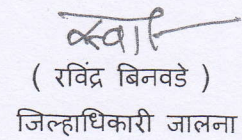 स्वा/-
( रविंद्र बिनवडे )
जिल्हाधिकारी जालना